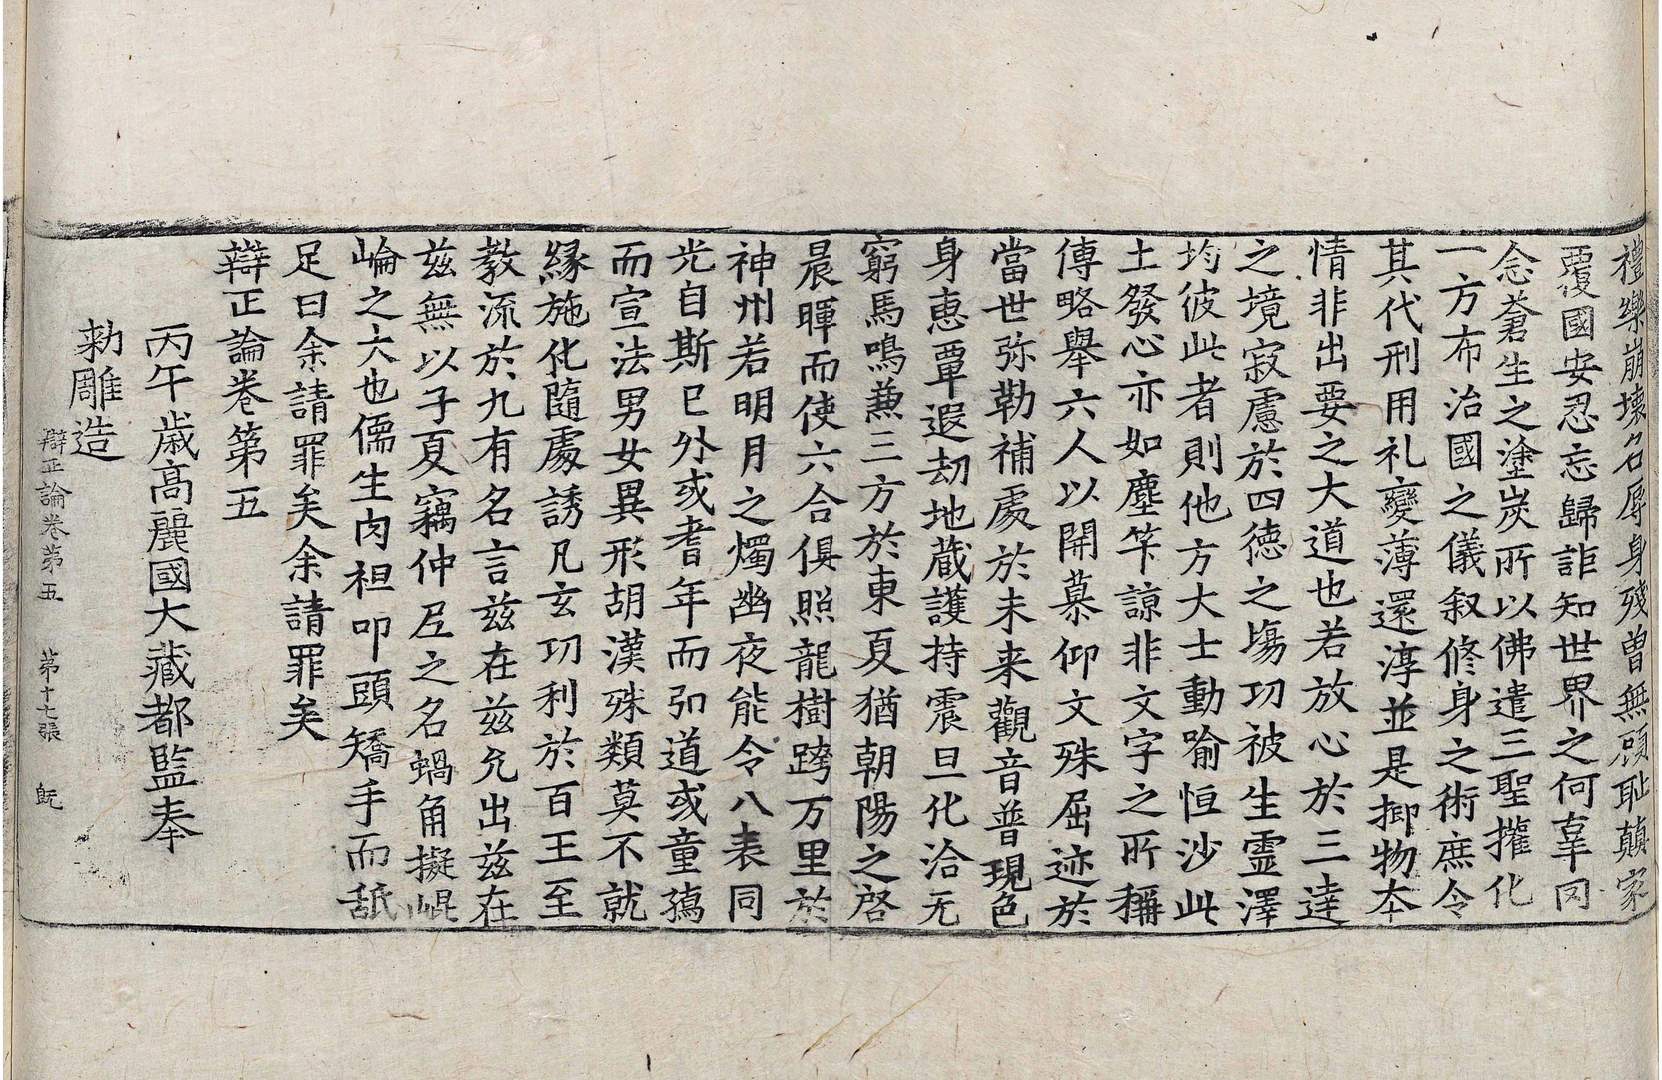 禮樂崩壞名辱身殘曽無頋耻顛家
覆國安忍忘歸詎知世界之何辜罔
念蒼生之塗炭所以佛遣三聖㩲化
一方布治國之儀叙修身之術庶令
其代刑用礼變薄還淳並是抑物本
情非出要之大道也若放心於三達
之境寂慮於四德之塲功被生靈澤
均彼此者則他方大士動喻恒沙此
土發心亦如塵筭諒非文字之所稱
傳略舉六人以開慕仰文殊屈迹於
當世弥勒補處於未来觀音普現色
身惠覃遐劫地藏護持震旦化洽无
窮馬鳴兼三方於東夏猶朝陽之啓
晨暉而使六合俱照龍樹跨万里於
神州若明月之燭幽夜能令八表同
光自斯已外或耆年而弘道或童孺
而宣法男女異形胡漢殊類莫不就
縁施化隨處誘凡玄功利於百王至
教流於九有名言兹在兹允出兹在
兹無以子夏竊仲尼之名蝸角擬崐
崘之大也儒生肉袒叩頭矯手而舐
足曰余請罪矣余請罪矣
辯正論卷第五
丙午歳高麗國大藏都監奉
勑雕造
辯正論卷第五 第十七張 旣